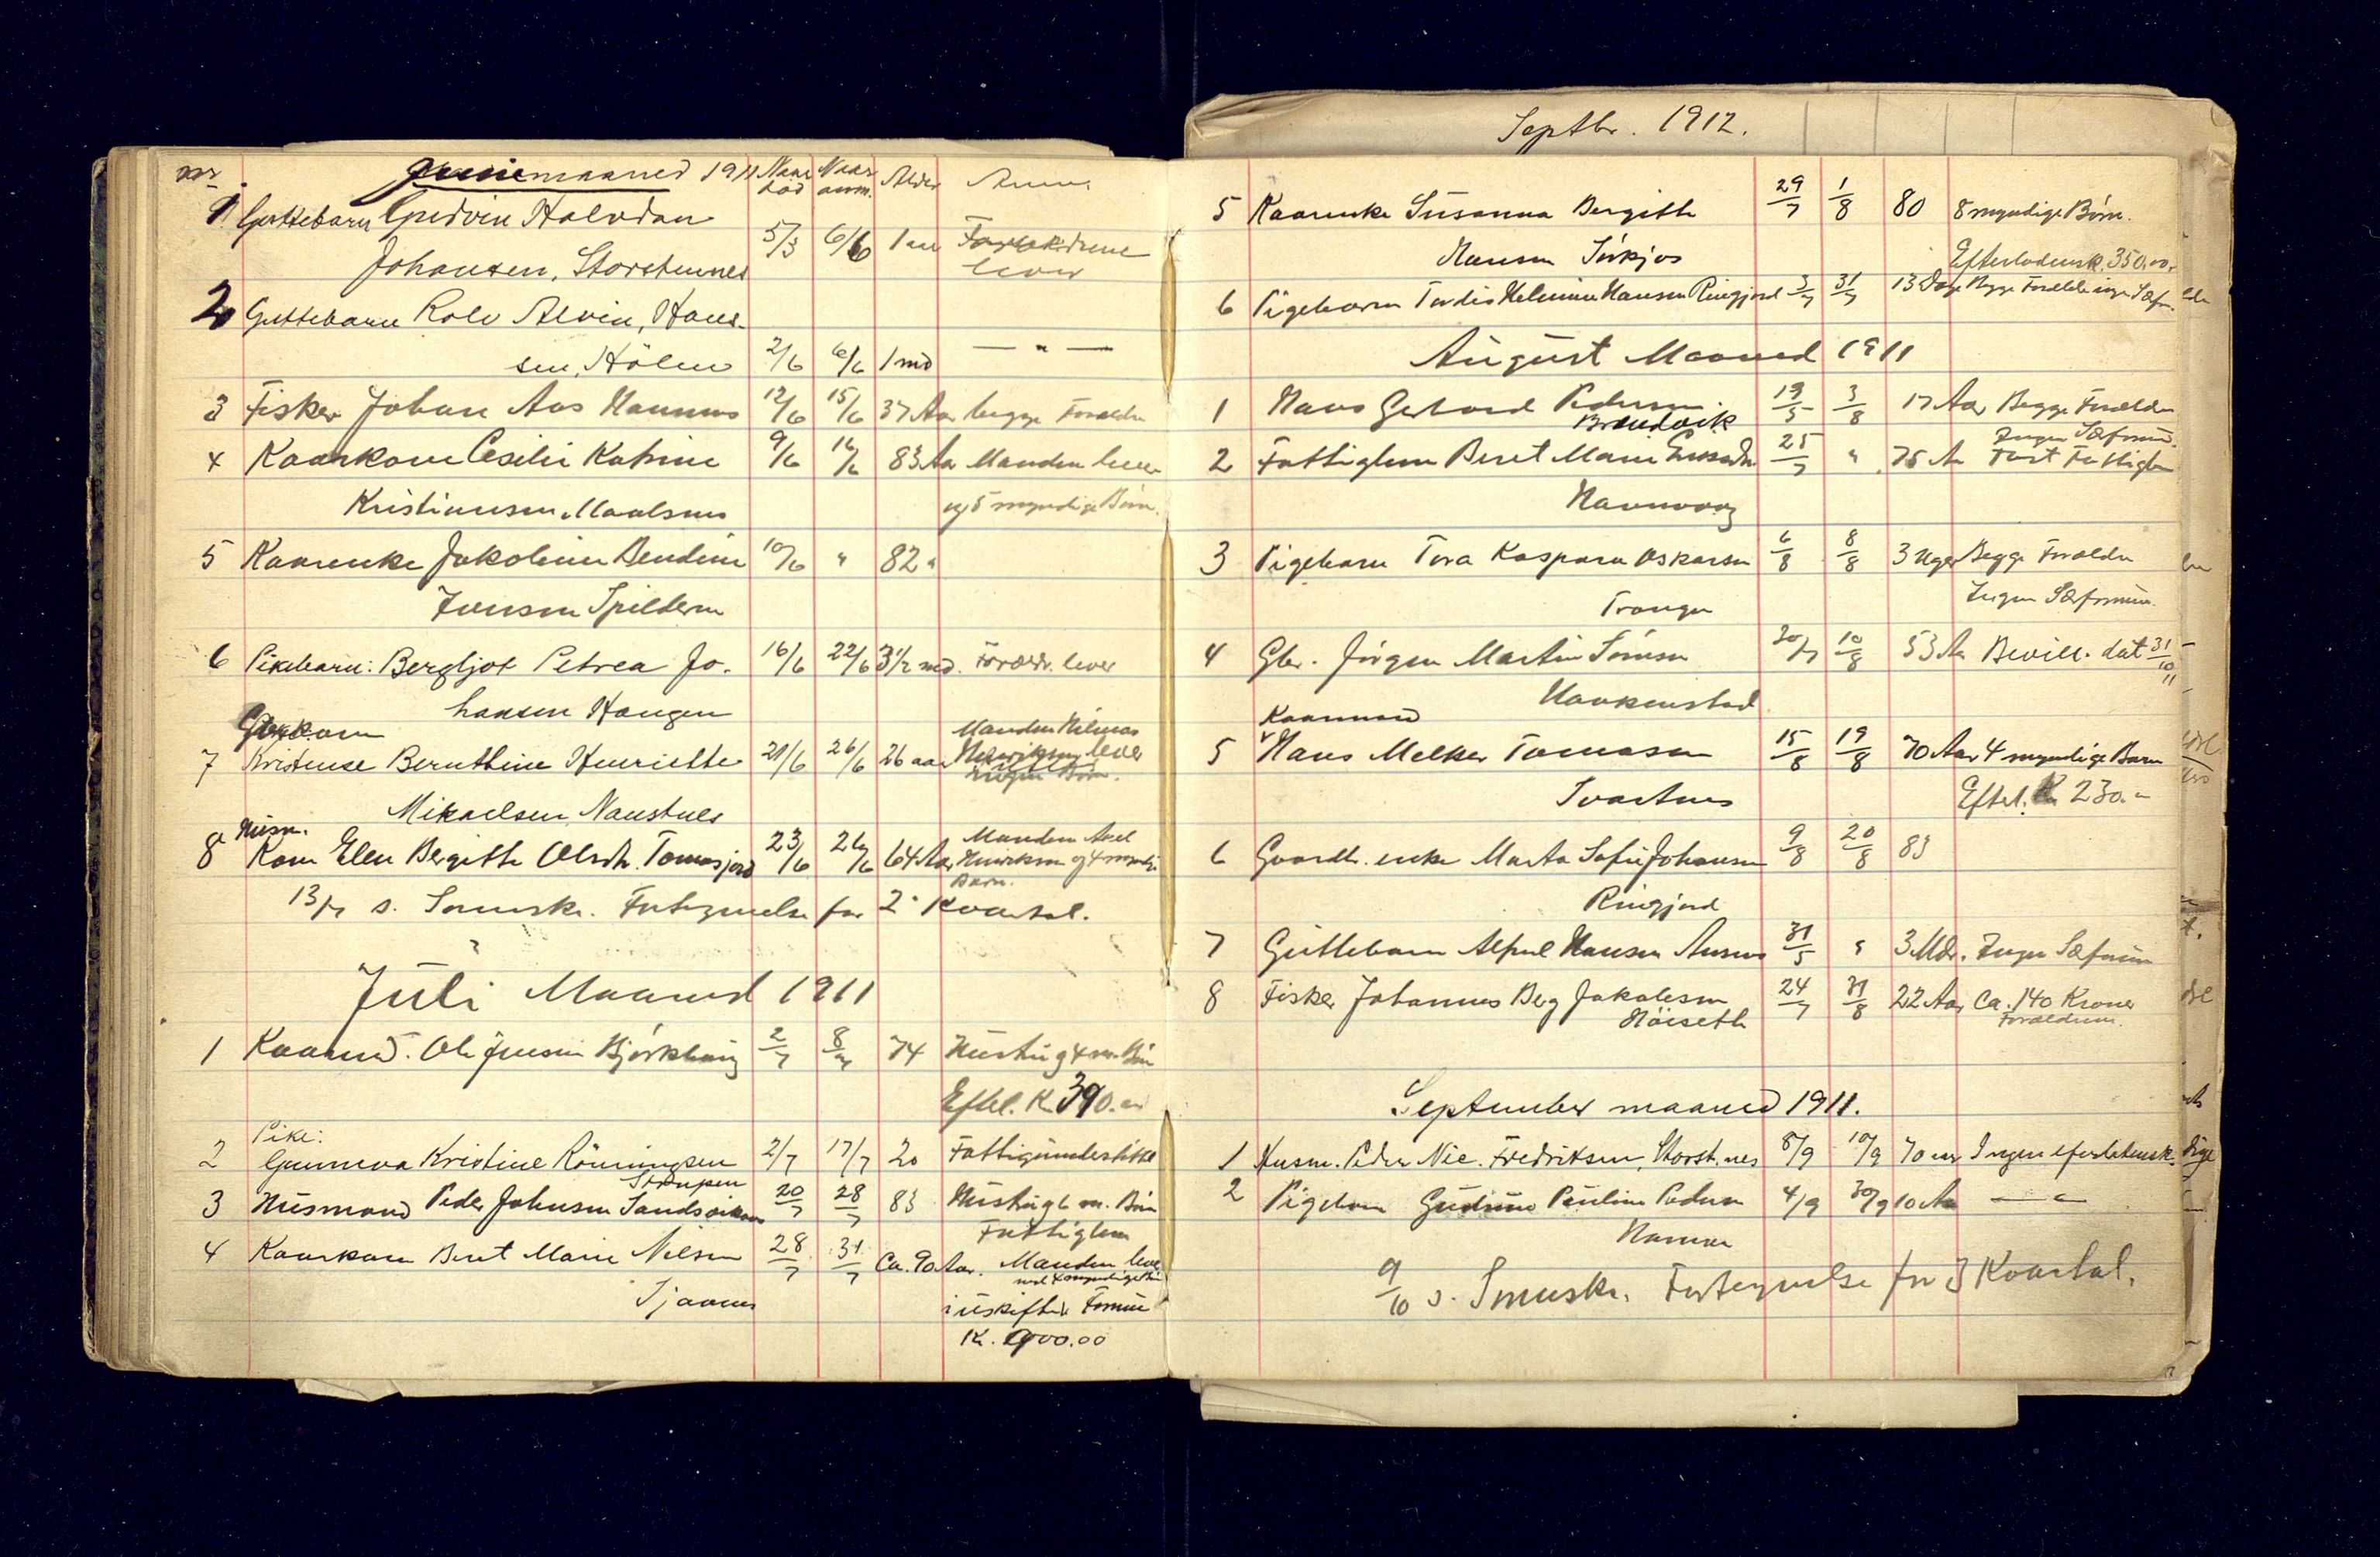 nr. Junimaaned 1911 Naar død Naar anm. Alder Anm.
1 Guttebarn Gudvin Halvdan
Johansen, Storstennes 5/3 6/6 1 aar Forældrene lever
2 Guttebarn Rolv Alvin, Han-
sen, Hölen 2/6 6/6 1 md — " —
3 Fisker Johan Aas Mannes 12/6 15/6 37 Aar begge Forældre
4 Kaarkone Cesilie Katrine 9/6 16/6 83 Aar Manden lever
Kristiansen, Maalsnes og 5 myndige Børn.
5 Kaarenke Jakobine Bendine 10/6 " 82 "
Jensen Spildern
6 Pikebarn: Bergljot Petrea Jo- 16/6 22/6 3 1/2 md. Forældr. lever
hansen Haugen
7 Kristense Bernthine Henriette 21/6 26/6 26 aar Manden Hilmar Henriksen lever
Mikaelsen, Naustnes
8 Husm. Kone Elen Bergitte Olsdtr. Tomasjord 23/6 26/6 64 Aar Manden Axel Henriksen og 4 myndi. Børn.
13/7 s. Sorenskr. Fortegnelse for 2. Kvartal.
Juli Maaned 1911
1 Kaarmd. Ole Jensen Bjørkhaug 2/7 8/7 74 Hustru og 4 m. Børn
Eftel. Kr. 390.00
Pike:
2 Gunneva Kristine Rönningsen 2/7 17/7 20 Fattigunderstøttet
Strupen
3 Husmand Peder Johnsen Sandsviken 20/7 28/7 83 Hustru og 6 m. Børn
Fattiglem
4 Kaarkone Beret Marie Nilsen 28/7 31/7 Ca. 90 Aar. Manden lever
med 4 myndige Børn
Tjaanes i uskiftet Formue
Kr. 900.00
Septbr. 1912.
5 Kaarenke Susanna Bergitte 29/7 1/8 80 8 myndige Børn.
Hansen Sørkjos Efterladensk. 350.00.
6 Pigebarn Tordis Helmine Hansen Ringjord 3/7 31/7 13 Dage Begge Forældre ingen Sæfm.
August Maaned 1911
1 Hans Gerhard Pedersen 19/5 3/8 17 Aar Begge Forældre
Brendvik Ingen Sæformue.
2 Fattiglem Beret Marie 25/7 " 75 Aar Fast Fattiglem
Havnvaag
3 Pigebarn Tora Kaspara Oskarsen 6/8 8/8 3 Uger Begge Forældre
Trangen Ingen Sæformue.
4 Gbr. Jörgen Martin Sörensen 30/7 10/8 53 Aar Bevill. dat 31/10 11
Haukenstad
Kaarmand
5 Hans Melker Tomasen 15/8 19/8 70 Aar 4 myndige Barn
Svartnes Eftel. Kr 230.-
6 Gaardbr. enke Marta Sofie Johansen 9/8 20/8 83
Ringjord
7 Guttebarn Alfred Hansen Ansnes 31/5 " 3 Mdr. Ingen Sæformue
8 Fisker Johannes Berg Jakobsen 24/7 31/8 22 Aar Ca. 140 Kroner
Höiseth Forældrene.
September maaned 1911.
1 Husm. Peder Nic. Fredriksen, Storst.nes 8/9 10/9 70 aar Ingen efterladensk.
2 Pigebarn Gudrun Pauline Pedersen 4/9 30/9 10 Aar — " —
Hamnn
9/10 s. Sorenskr. Fortegnelse for 3 Kvartal.